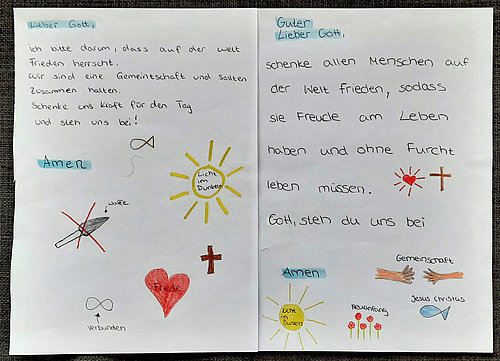 Lieber Gott,
ich bitte darum, dass auf der Welt
Frieden herrscht.
Wir sind eine Gemeintschaft und sollten
zusammen halten.
Schenke uns Kraft für den Tag
und steh uns bei!
Amen
Licht
im
Dunkeln
Waffe
Friede
Verbunden
Guter
Lieber Gott,
schenke allen Menschen auf
der Welt Frieden, sodass
sie Freude am Leben
haben und ohne Furcht
leben müssen.
Gott, steh du uns bei
Amen
Licht
im
Dunkeln
Neuanfang
Gemeinschaft
Jesus Christus